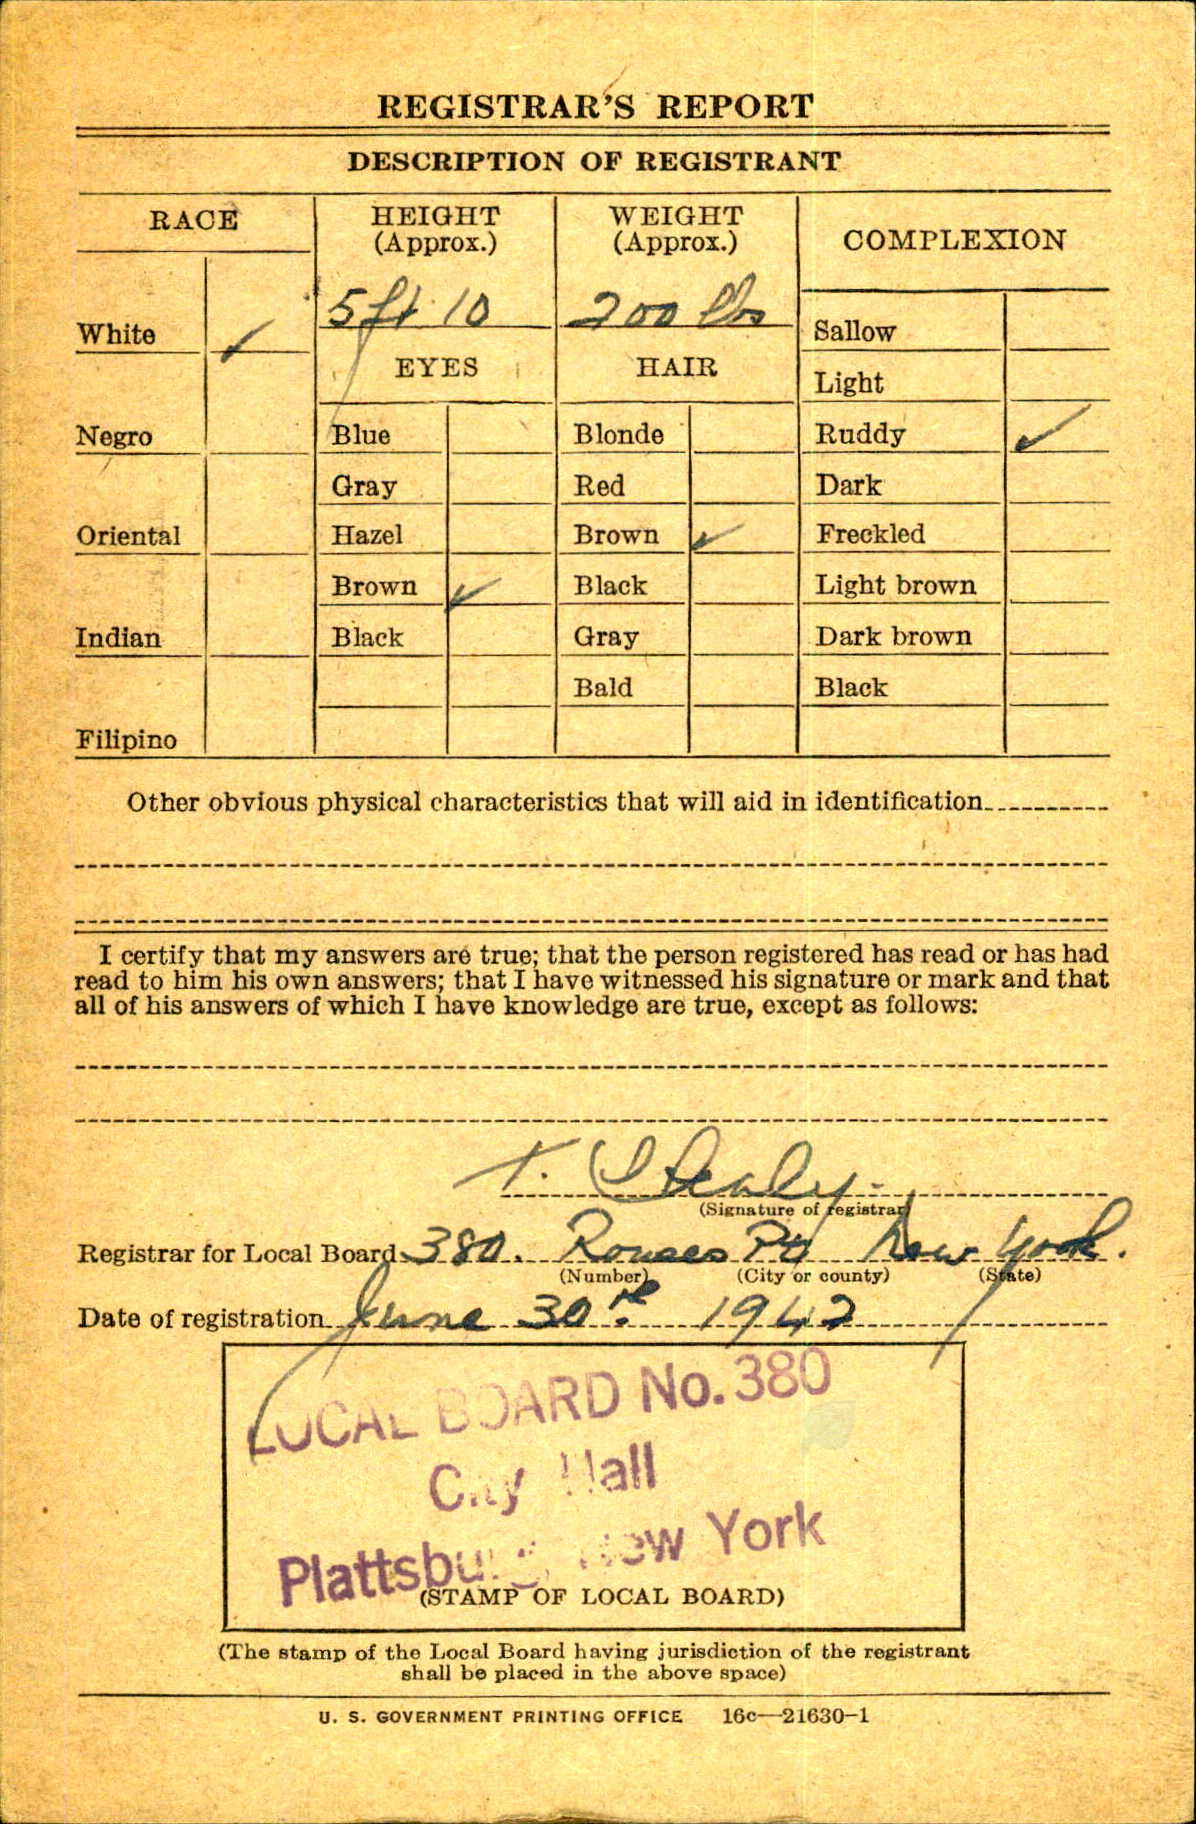 REGISTRAR'S REPORT
DESCRIPTION OF REGISTRANT
RACE
HEIGHT
(Approx.)
WEIGHT
(Approx.)
COMPLEXION
5 ft 10
200 lbs
White ✓
Sallow
EYES
HAIR
Light
Negro
Blue
Blonde
Ruddy ✓
Gray
Red
Dark
Oriental
Hazel
Brown ✓
Freckled
Brown ✓
Black
Light brown
Indian
Black
Gray
Dark brown
Bald
Black
Filipino
Other obvious physical characteristics that will aid in identification
I certify that my answers are true; that the person registered has read or has had
read to him his own answers; that I have witnessed his signature or mark and that
all of his answers of which I have knowledge are true, except as follows:
T. Healy
(Signature of registrar)
Registrar for Local Board 380. Rouses Pt New York.
(Number) (City or county) (State)
Date of registration June 30 1942
LOCAL BOARD No. 380
City Hall
Plattsburg, New York
(STAMP OF LOCAL BOARD)
(The stamp of the Local Board having jurisdiction of the registrant
shall be placed in the above space)
U. S. GOVERNMENT PRINTING OFFICE 16c—21630-1